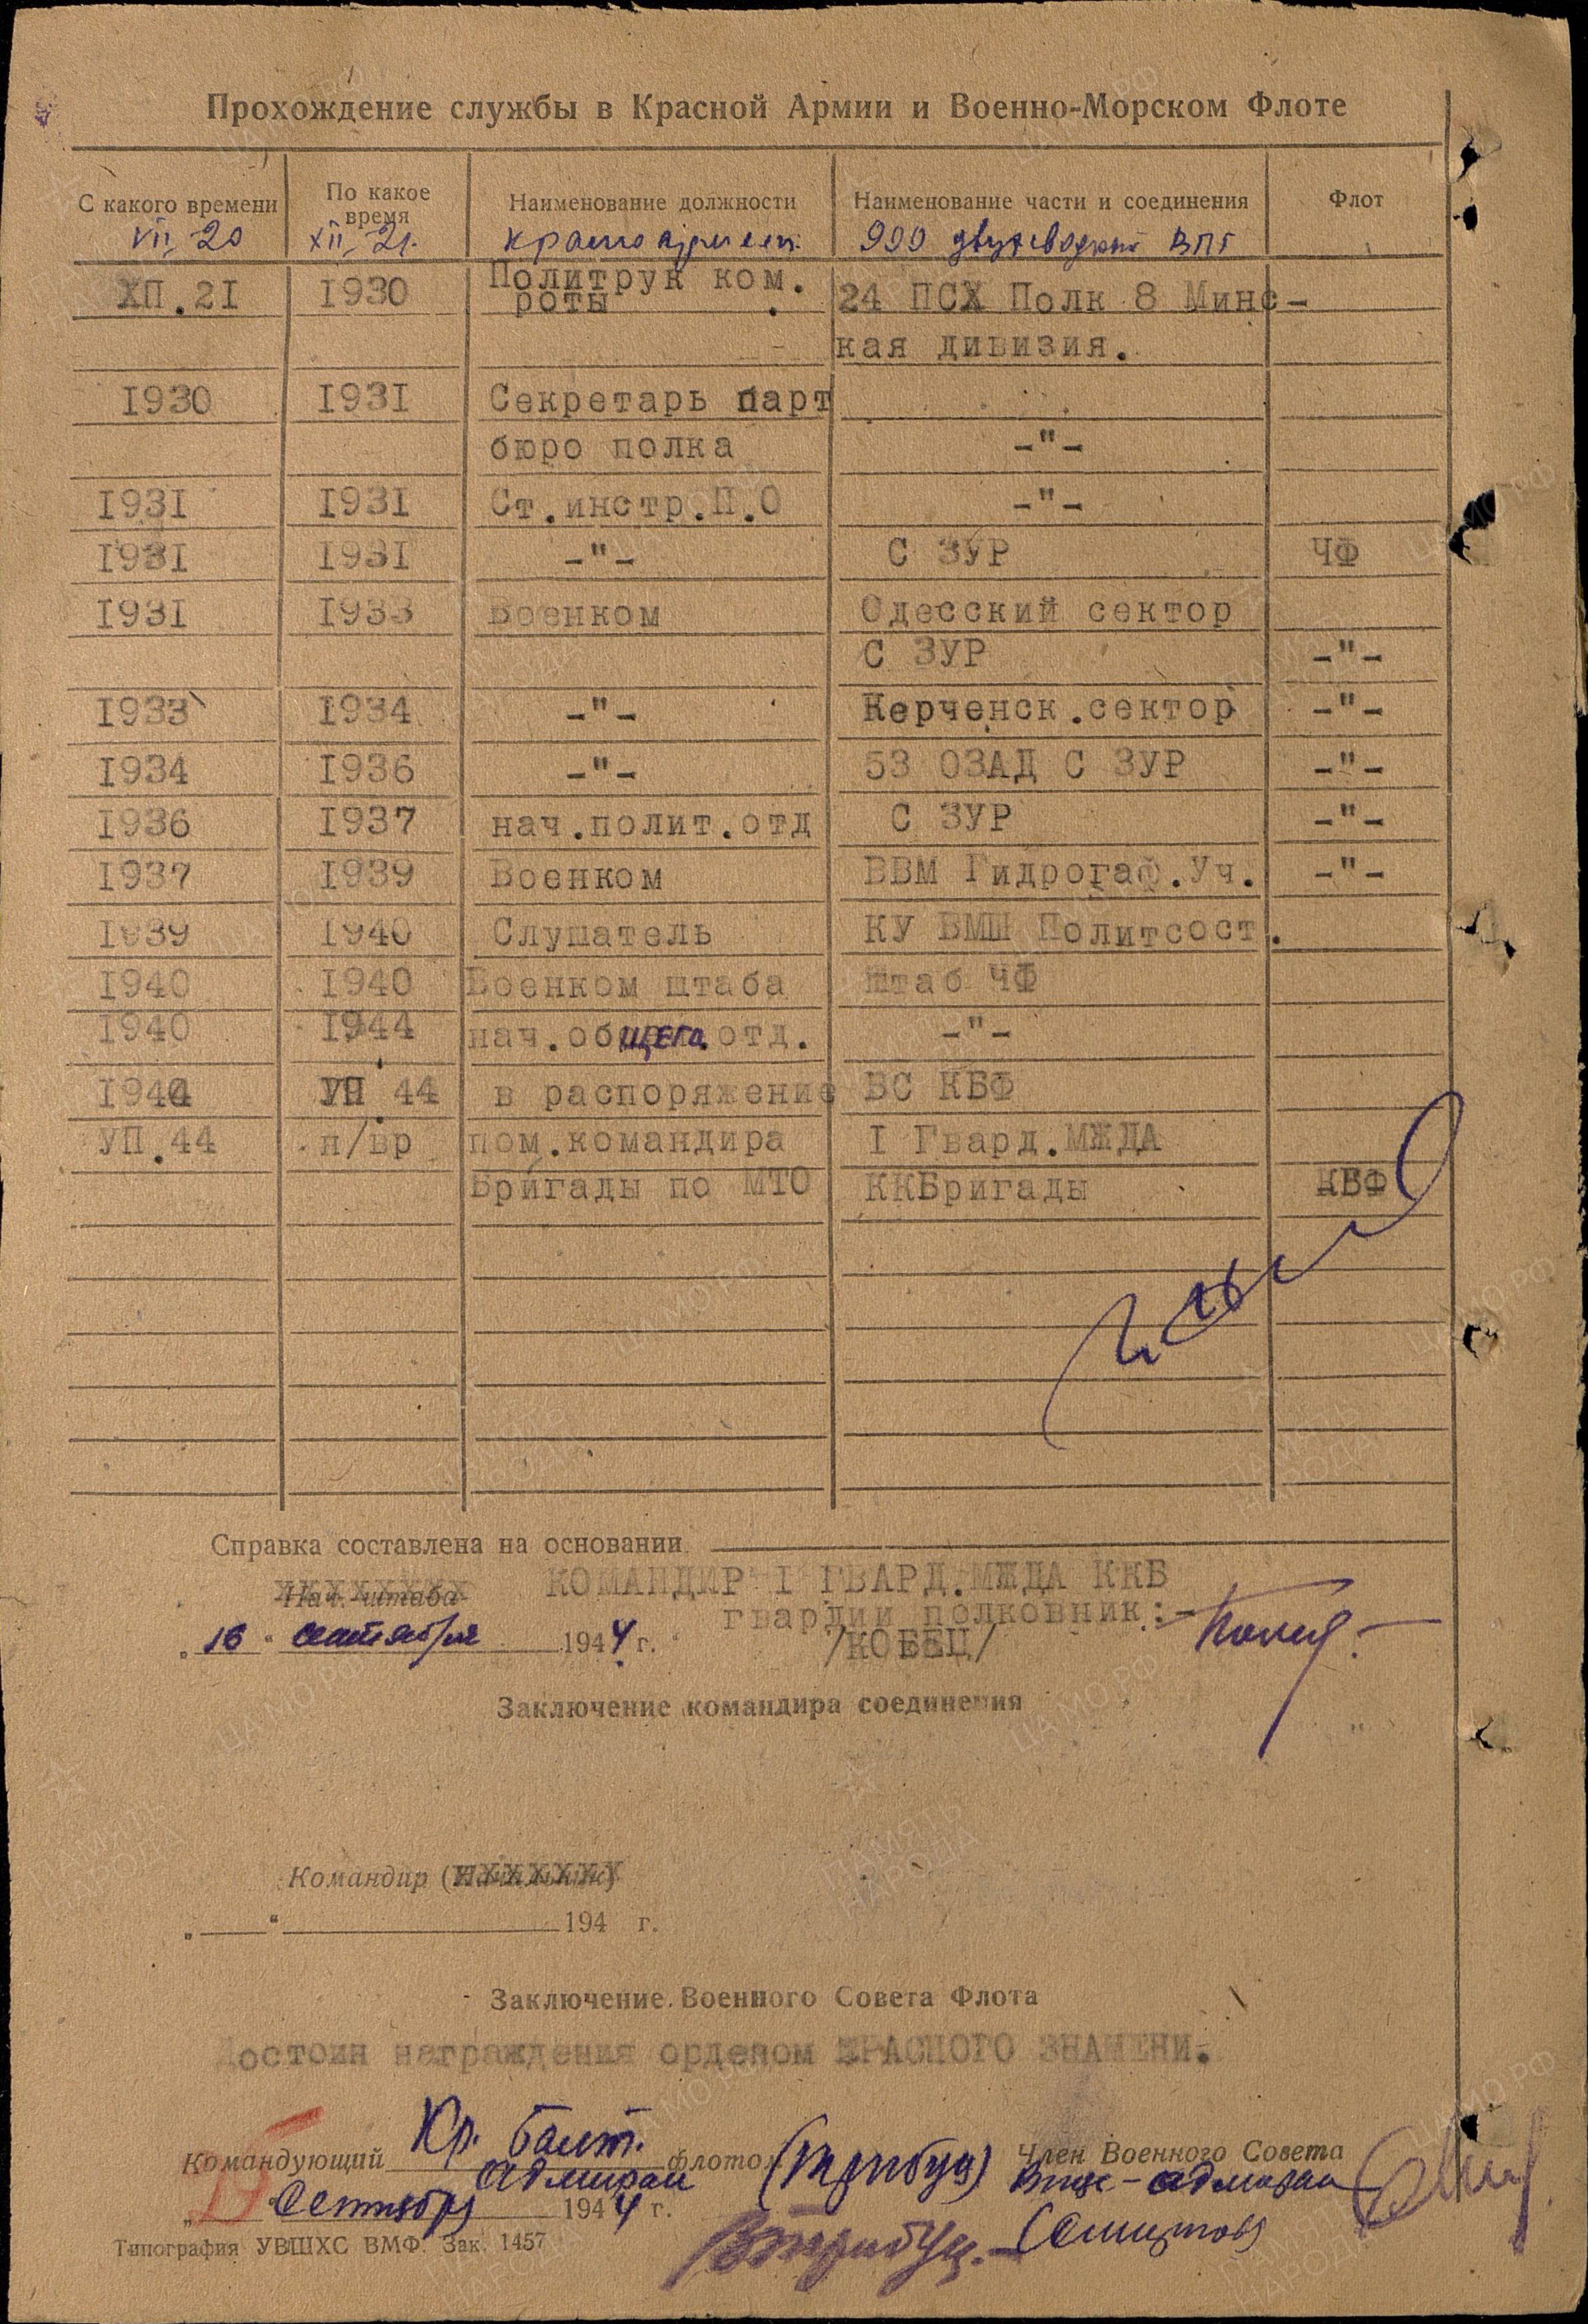 Прохождение службы в Красной Армии и Военно-Морском Флоте
С какого времени По какое время Наименование должности Наименование части и соединения Флот
VII. 20 XII. 21. красноармеец 999 ВПГ
ХП.2I I930 Политрук ком. роты 24 ПСХ Полк 8 Минс-
кая дивизия.
I930 I93I Секретарь парт
бюро полка -"-
I93I I93I Ст.инстр.П.О -"-
I93I I93I -"- С ЗУР ЧФ
I93I I933 Военком Одесский сектор
С ЗУР -"-
I933 I934 -"- Керченск.сектор -"-
I934 I936 -"- 53 ОЗАД С ЗУР -"-
I936 I937 нач.полит.отд С ЗУР -"-
I937 I939 Военком ВВМ Гидрогаф.Уч. -"-
I939 I940 Слушатель КУ ВМШ Политсост.
I940 I940 Военком штаба штаб ЧФ
I940 I944 нач.общего отд. -"-
I944 УП.44 в распоряжение ВС КБФ
УП.44 н/вр пом.командира I Гвард.МЖДА
Бригады по МТО ККБригады КБФ
Справка составлена на основании
Нач. штаба КОМАНДИР I ГВАРД.МЖДА ККБ
гвардии полковник:-
„16" сентября 1944 г. /КОБЕЦ/
Заключение командира соединения
Командир (Начальник)
„ " 194 г.
Заключение Военного Совета Флота
Достоин награждения орденом КРАСНОГО ЗНАМЕНИ.
Командующий Кр. Балт. флотом (Трибуц) Член Военного Совета
адмирал вице-адмирал
Сентября 1944 г. (Смирнов)
ВТрибуц.
Типография УВШХС ВМФ. Зак. 1457